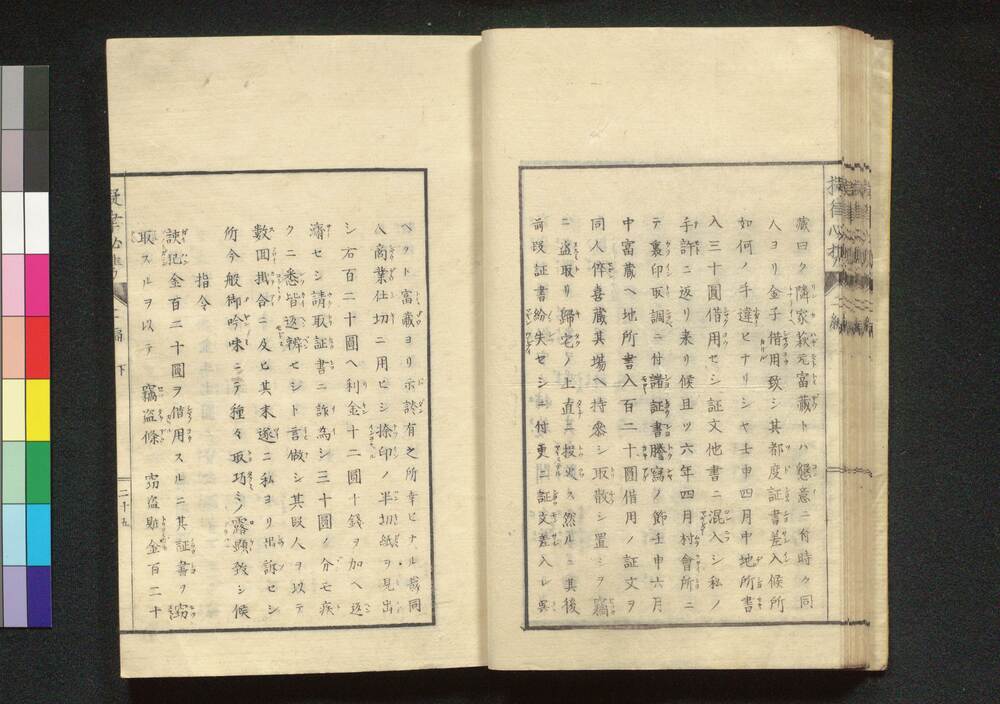 藏曰ク隣家萩元富藏トハ懇意ニ付時々同
人ヨリ金子借用致シ其都度証書差入候所
如何ノ手違ヒナリシヤ壬申四月中地所書
入三十圓借用セシ証文他書ニ混入シ私ノ
手許ニ返リ来リ候且ツ六年四月村會所ニ
テ裏印取調ニ付諸証書謄寫ノ節壬申六月
中富藏ヘ地所書入百二十圓借用ノ証文ヲ
同人倅喜藏其場ヘ持参シ取散シ置ショ竊
ニ盗取リ歸宅ノ上直ニ投火ス然ルニ其後
前段証書紛失セシニ付更ニ証文差入レ呉
ベク卜富藏ヨリ示談有之所幸ヒナル哉同
人商業仕切ニ用ヒシ捺印ノ半切紙ヲ見出
シ右百二十圓ヘ利金十二圓十錢ヲ加ヘ返
濟セシ請取証書ニ詐為シ三十圓ノ分モ疾
クニ悉皆返辨セシト言做シ其段人ヲ以テ
數囬掛合ニ及ヒ其末遂ニ私ヨリ出訴セシ
所今般御吟味ニテ種々取巧ミノ露顕致シ候
指令
諛犯金百二十圓ヲ借用スルニ其証書ヲ竊
取スルヲ以テ 竊盗條 竊盗贓金百二十
二編 下
二十五